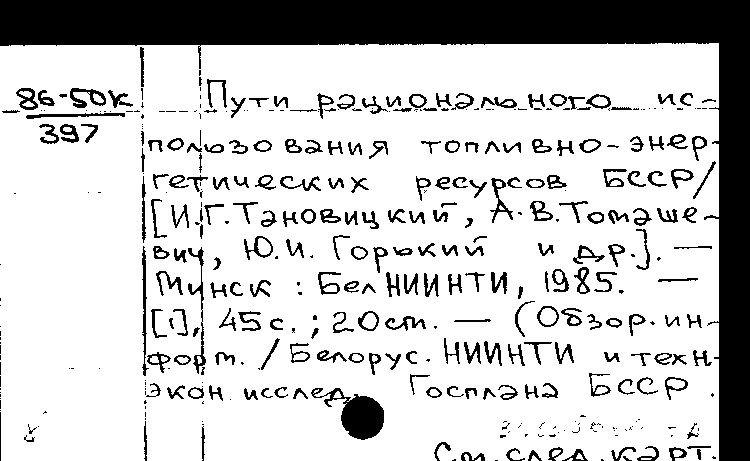 86-50к
397
Пути рационального ис-
пользования топливно-энер-
гетических ресурсов БССР/
[И.Г.Тановицкий, А.В.Томаше-
вич, Ю.И. Горький и др.]. —
Минск : БелНИИНТИ, 1985. —
[1], 45с. ; 20см. — (Обзор. ин-
форм. / Белорус. НИИНТИ и техн-
экон исслед. Госплана БССР.
См. след. карт.